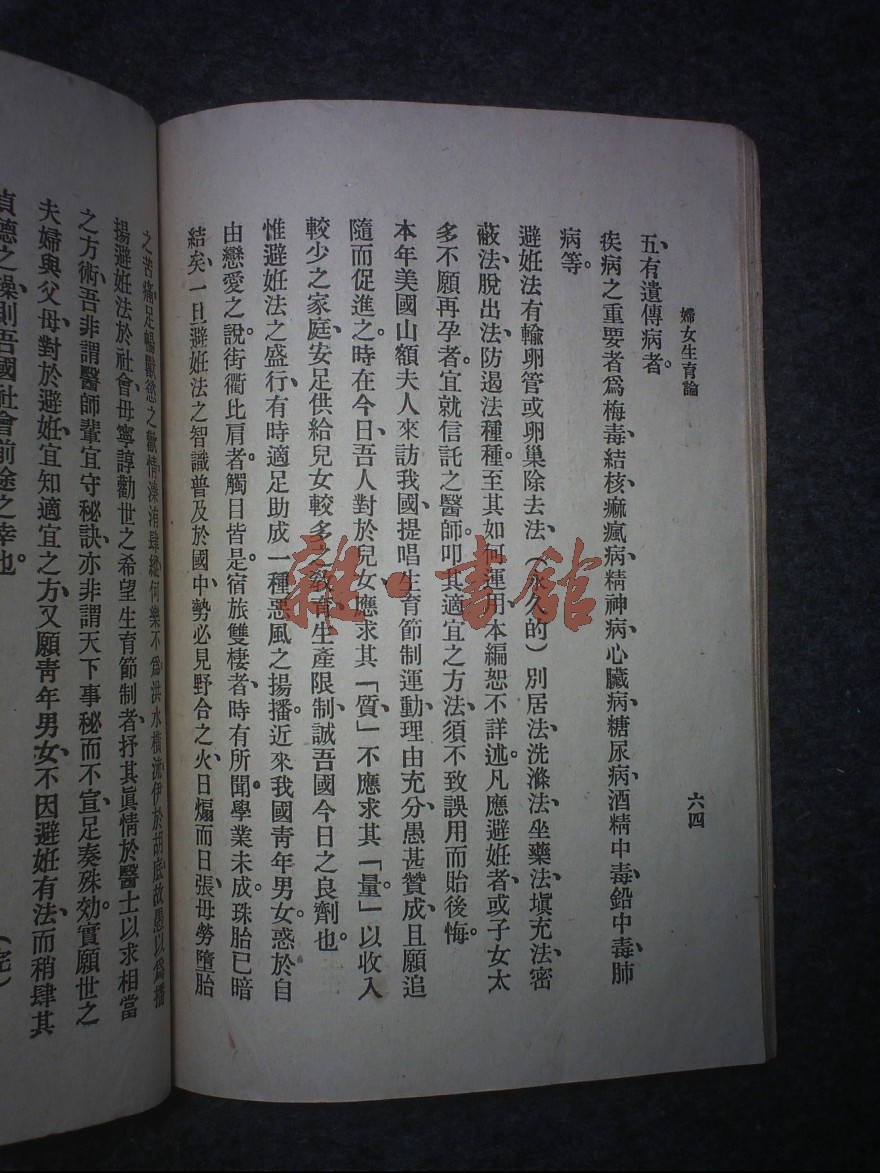 婦女生育論
六四
五、有遺傳病者。
疾病之重要者爲梅毒、結核、痲瘋病、精神病、心臟病、糖尿病、酒精中毒、鉛中毒、肺
病等。
避妊法有輸卵管或卵巢除去法、(永久的)別居法、洗滌法、坐藥法、塡充法、密
蔽法、脫出法、防遏法種種。至其如何運用、本編恕不詳述。凡應避妊者、或子女太
多不願再孕者、宜就信託之醫師、叩其適宜之方法、須不致誤用而貽後悔。
本年美國山額夫人來訪我國、提唱生育節制運動、理由充分、愚甚贊成、且願追
隨而促進之。時在今日、吾人對於兒女、應求其「質」不應求其「量」。以收入
較少之家庭、安足供給兒女較多之敎育、生產限制、誠吾國今日之良劑也。
惟避妊法之盛行、有時適足助成一種惡風之揚播、近來我國靑年男女、惑於自
由戀愛之說、街衢比肩者、觸目皆是。宿旅雙棲者、時有所聞。學業未成、珠胎已暗
結矣、一旦避妊法之智識普及於國中、勢必見野合之火、日煽而日張、毋勞墮胎
之苦痛、足暢獸慾之歡情、溱洧肆縱、何樂不爲、洪水橫流、伊於胡底、故愚以爲播
揚避妊法於社會、毋寧諄勸世之希望生育節制者、抒其眞情於醫士、以求相當
之方術、吾非謂醫師輩宜守秘訣、亦非謂天下事秘而不宣、足奏殊効。實願世之
夫婦與父母、對於避妊、宜知適宜之方、又願靑年男女、不因避妊有法、而稍肆其
貞德之操、則吾國社會前途之幸也。(完)
雜·書館